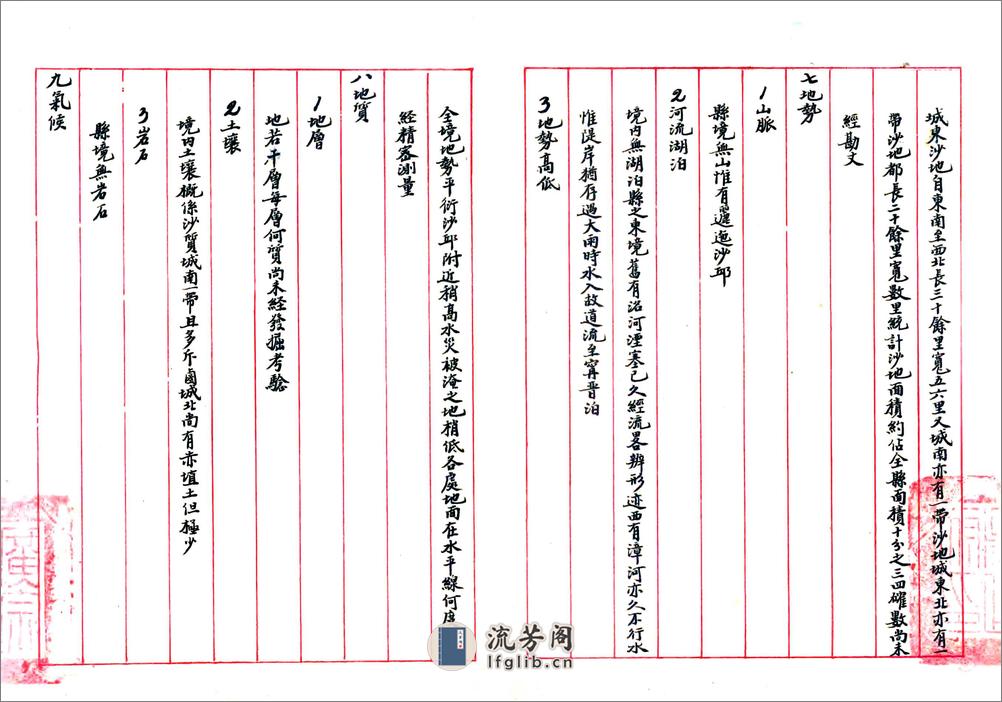 城東沙地自東南至西北長三十餘里寬五六里又城南亦有一帶沙地城東北亦有一
帶沙地都長二十餘里寬數里統計沙地面積約佔全縣面積十分之三四確數尚未
經勘丈
七地勢
1山脈
縣境無山惟有邐迤沙邱
2河流湖泊
境內無湖泊縣之東境舊有洺河湮塞已久經流畧辨形迹西有漳河亦久不行水
惟隄岸猶存遇大雨時水入故道流至寗晋泊
3地勢高低
全境地勢平衍沙邱附近稍高水災被淹之地稍低各處地面在水平線何度
經精密測量
八地質
1地層
地若干層每層何質尚未經發掘考驗
2土壤
境內土壤概係沙質城南一帶且多斥鹵城北尚有赤埴土但極少
3岩石
縣境無岩石
九氣候
流芳阁
lfglib.cn